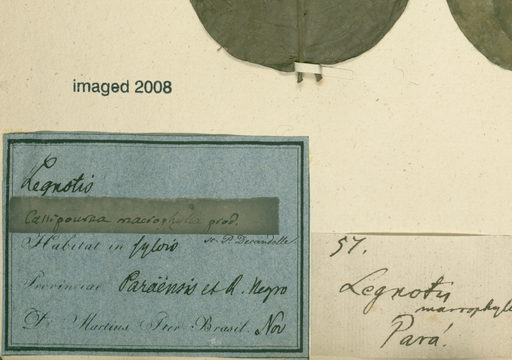 imaged 2008
Legnotis
Cassipourea macrophylla prod.
Habitat in sylvis
sr. P. Decandolle
Provinciae Paraënsis et R. Negro
Dr. Martius Iter Brasil. Nov
57.
Legnotis
macrophylla
Pará.